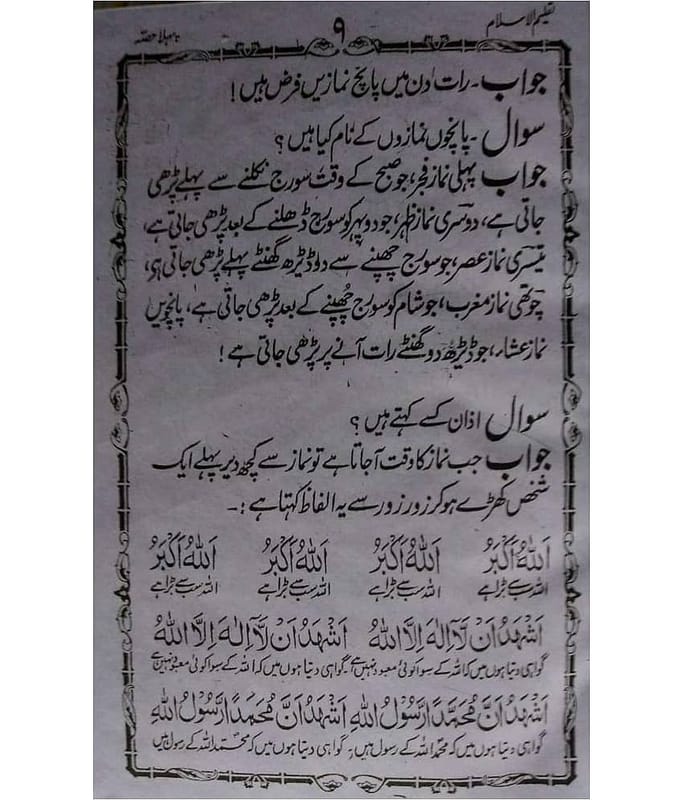 تعلیم الاسلام
۹
پہلا حصہ
جواب ۔ رات دن میں پانچ نمازیں فرض ہیں!
سوال ۔ پانچوں نمازوں کے نام کیا ہیں؟
جواب پہلی نماز فجر، جو صبح کے وقت سورج نکلنے سے پہلے پڑھی
جاتی ہے، دوسری نماز ظہر، جو دوپہر کو سورج ڈھلنے کے بعد پڑھی جاتی ہے،
تیسری نماز عصر، جو سورج چھپنے سے دو ڈیڑھ گھنٹے پہلے پڑھی جاتی ہی،
چوتھی نماز مغرب، جو شام کو سورج چُھپنے کے بعد پڑھی جاتی ہے، پانچویں
نماز عشاء، جو ڈیڑھ دو گھنٹے رات آنے پر پڑھی جاتی ہے!
سوال اذان کسے کہتے ہیں؟
جواب جب نماز کا وقت آجاتا ہے تو نماز سے کچھ دیر پہلے ایک
شخص کھڑے ہو کر زور زور سے یہ الفاظ کہتا ہے :۔
اَللّٰهُ اَکْبَرُ اَللّٰهُ اَکْبَرُ اَللّٰهُ اَکْبَرُ اَللّٰهُ اَکْبَرُ
اللہ سب سے بڑا ہے اللہ سب سے بڑا ہے اللہ سب سے بڑا ہے اللہ سب سے بڑا ہے
اَشْهَدُ اَنْ لَّآ اِلٰهَ اِلَّا اللّٰهُ اَشْهَدُ اَنْ لَّآ اِلٰهَ اِلَّا اللّٰهُ
گواہی دیتا ہوں میں کہ اللہ کے سوا کوئی معبود نہیں ہے گواہی دیتا ہوں میں کہ اللہ کے سوا کوئی معبود نہیں ہے
اَشْهَدُ اَنَّ مُحَمَّدًا رَّسُوْلُ اللّٰهِ اَشْهَدُ اَنَّ مُحَمَّدًا رَّسُوْلُ اللّٰهِ
گواہی دیتا ہوں میں کہ محمدؐ اللہ کے رسول ہیں، گواہی دیتا ہوں میں کہ محمدؐ اللہ کے رسول ہیں